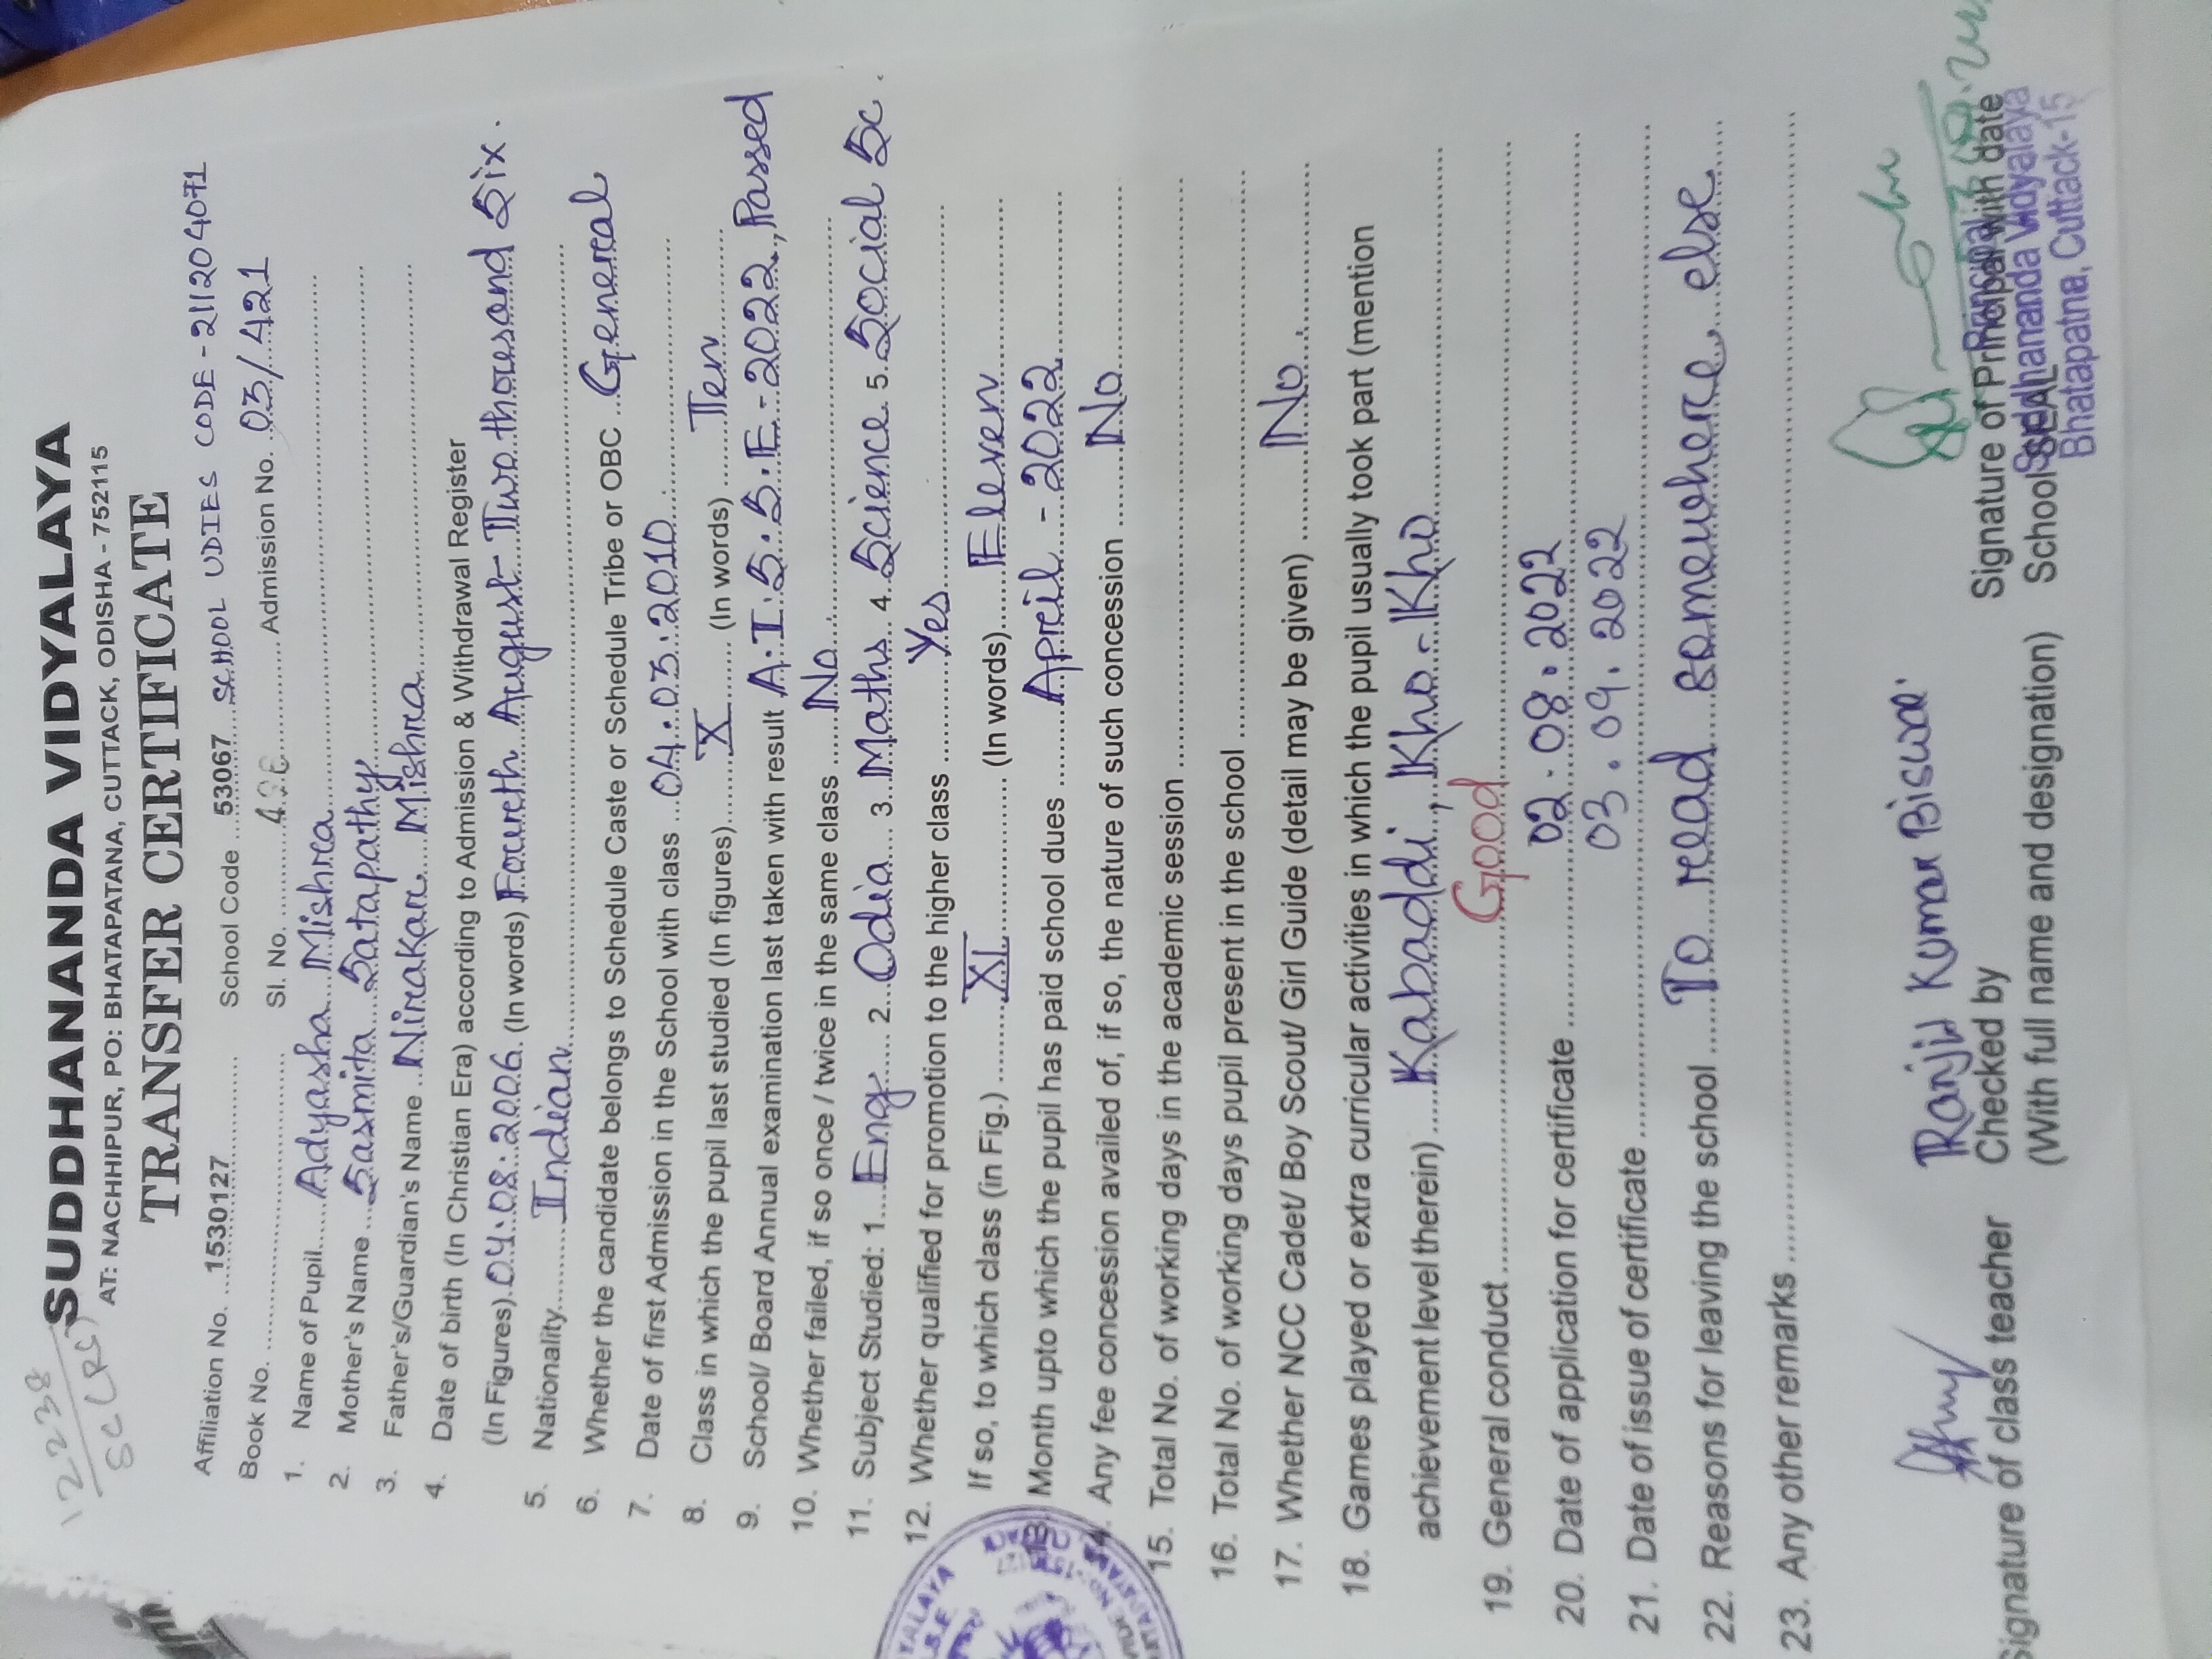 12238
SC (RS)
SUDDHANANDA VIDYALAYA
AT: NACHHIPUR, PO: BHATAPATANA, CUTTACK, ODISHA - 752115
TRANSFER CERTIFICATE
Affiliation No. ...1530127............ School Code ...53067... SCHOOL UDIES CODE - 211204071
Book No. .............................. Sl. No. ............ Admission No. ..03/421
1. Name of Pupil......Adyasha Mishra
2. Mother's Name ...Sasmita Satapathy
3. Father's/Guardian's Name ..Nirakar Mishra
4. Date of birth (In Christian Era) according to Admission & Withdrawal Register
(In Figures).04.08.2006. (In words) Fourth August - Two thousand Six.
5. Nationality..........Indian
6. Whether the candidate belongs to Schedule Caste or Schedule Tribe or OBC ..General
7. Date of first Admission in the School with class ...04.03.2010
8. Class in which the pupil last studied (In figures)......X...... (In words) ......Ten
9. School/ Board Annual examination last taken with result A.I.S.S.E - 2022, Passed
10. Whether failed, if so once / twice in the same class ....No
11. Subject Studied: 1...Eng.... 2...Odia... 3...Maths.. 4..Science. 5. Social Sc.
12. Whether qualified for promotion to the higher class ............Yes
If so, to which class (in Fig.) ........XI........ (In words).....Eleven
13. Month upto which the pupil has paid school dues ........April - 2022
14. Any fee concession availed of, if so, the nature of such concession ........No
15. Total No. of working days in the academic session ........................
16. Total No. of working days pupil present in the school ........................
17. Whether NCC Cadet/ Boy Scout/ Girl Guide (detail may be given) .........No.
18. Games played or extra curricular activities in which the pupil usually took part (mention
achievement level therein) .....Kabaddi, Kho-Kho
19. General conduct....................Good
20. Date of application for certificate ................02.08.2022
21. Date of issue of certificate .................03.09.2022
22. Reasons for leaving the school ......To read somewhere else
23. Any other remarks ........................
Ranjit Kumar Biswal
Signature of class teacher Checked by Signature of Principal with date
(With full name and designation) School SEAL
Principal
Suddhananda Vidyalaya
Bhatapatna, Cuttack-15